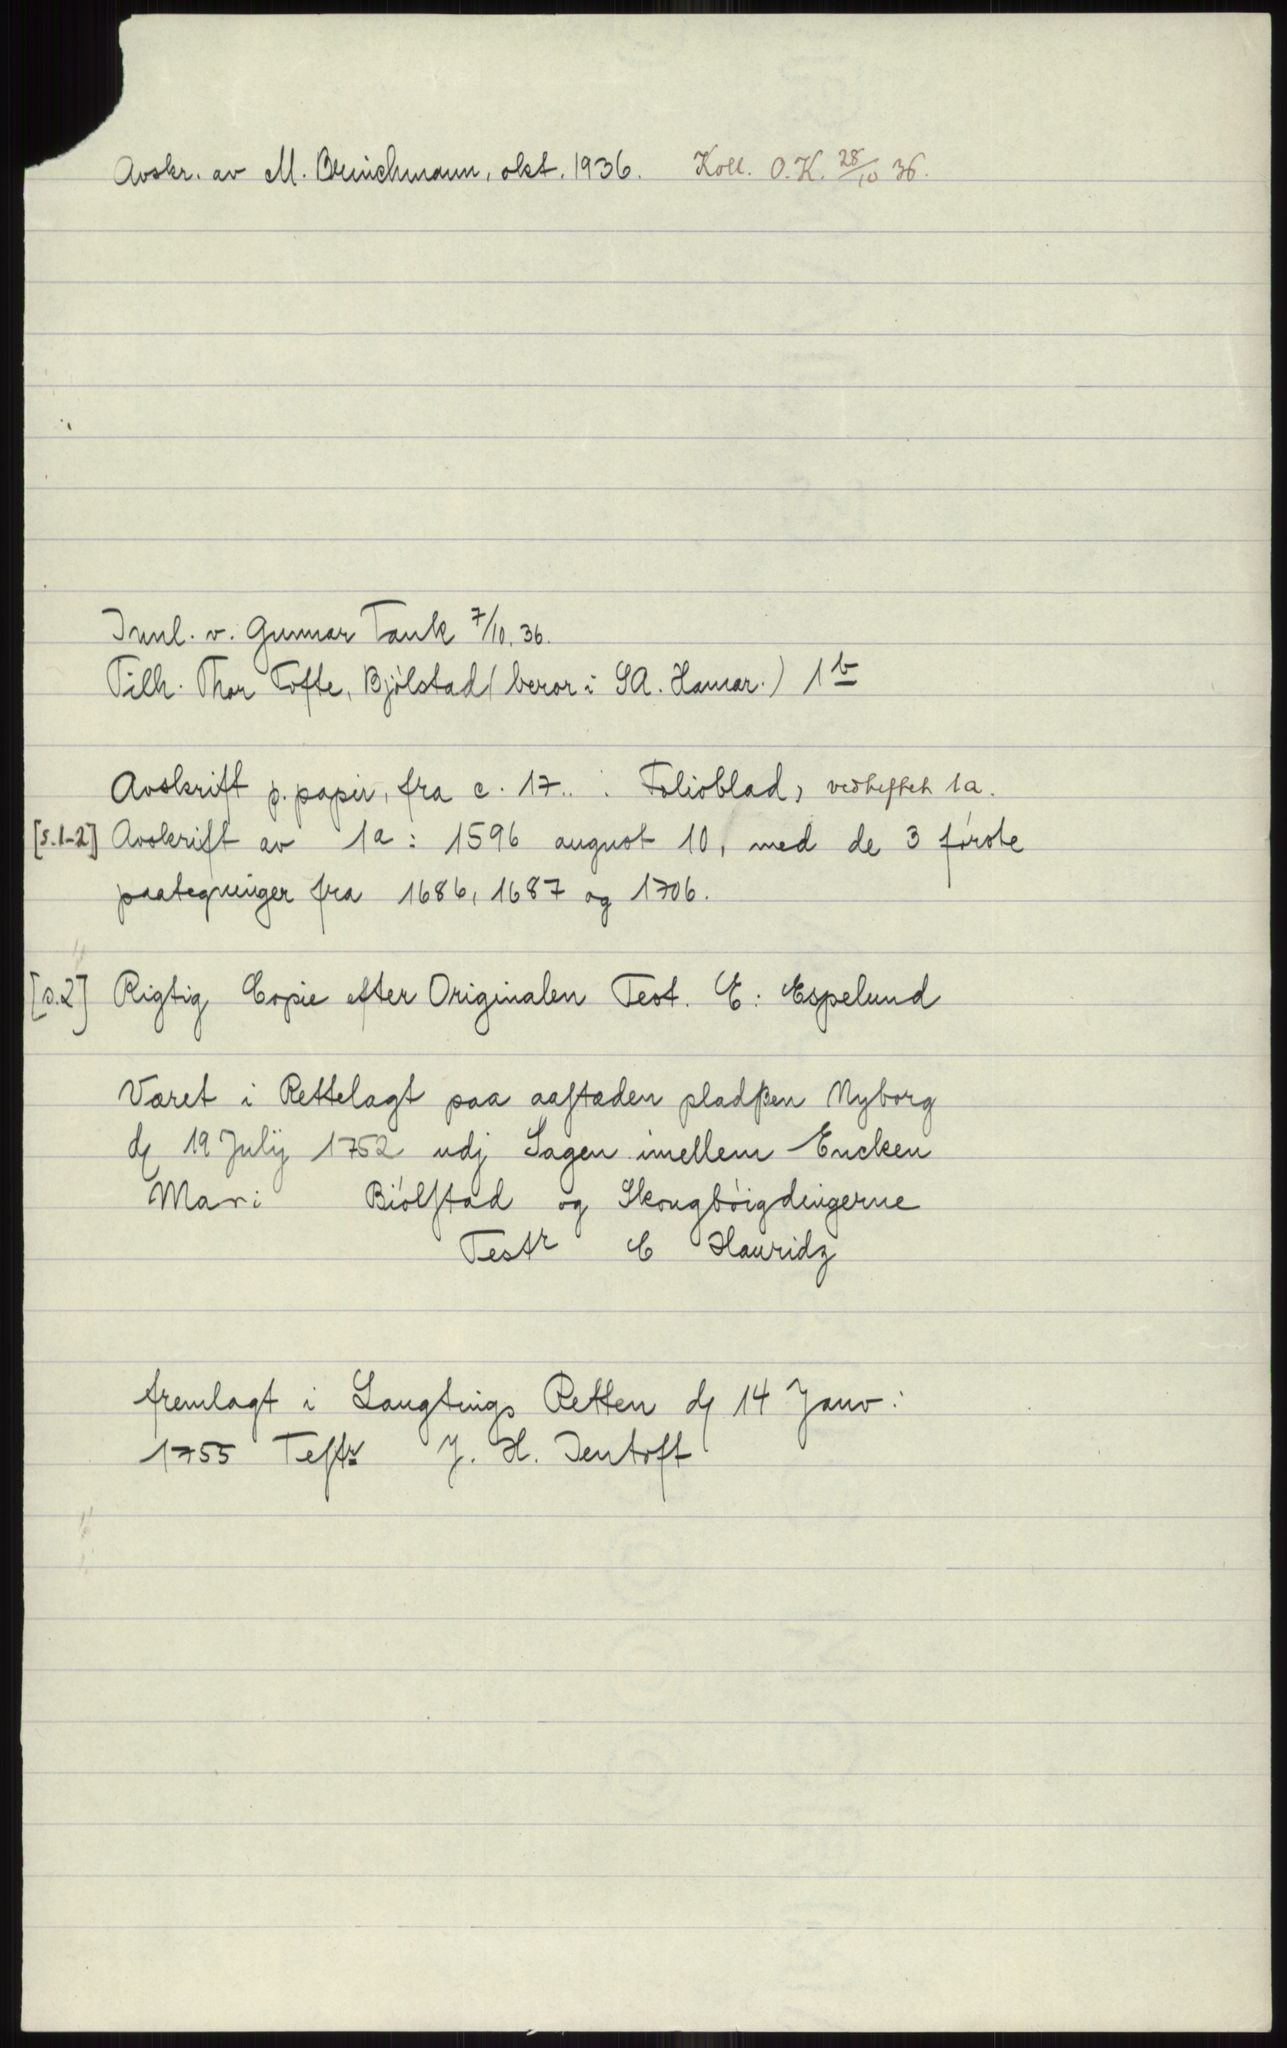 Avskr. av M. Brinchmann, okt. 1936. Koll. O.K. 28/10 36.
Innl. v. Gunnar Tank 7/10. 36.
Tilh. Thor Tofte, Bjólstad (beror i SA. Hamar.) 1b
Avskrift p. papir, fra c. 17.. . Folioblad, vedheftet 1a.
[s.1-2] Avskrift av 1a: 1596 august 10, med de 3 fórste
paategninger fra 1686, 1687 og 1706.
[s.2] Rigtig Copie efter Originalen Test. E: Espelund
Været i Rettelagt paa aaſtæden pladßen Nyborg
dʒ 19 Julÿ 1752 udj Sagen imellem Encken
Mari Biólſtad og Skougbóigdingerne
Testr C Hauridz
fremlagt i Laugtings Retten dʒ 14 Janv:
1755 Teſtr J. H. Jentoft